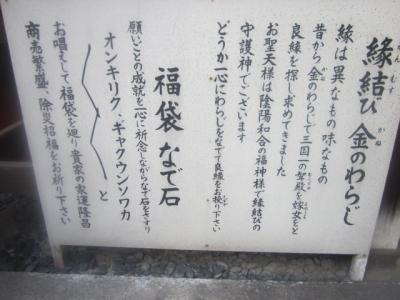 縁結び 金のわらじ
縁は異なもの味なもの
昔から金のわらじで三国一の聟殿を嫁女をと
良縁を探し求めてきました
お聖天様は陰陽和合の福神様で縁結びの
守護神でございます
どうか一心にわらじをなでて良縁をお授り下さい
福袋 なで石
願いごとの成就を一心に祈念しながらなで石をさすり
オンキリク、ギャクウンソワカ
と
お唱えして福袋を廻り貴家の家運隆昌
商売繁盛、除災招福をお祈り下さい